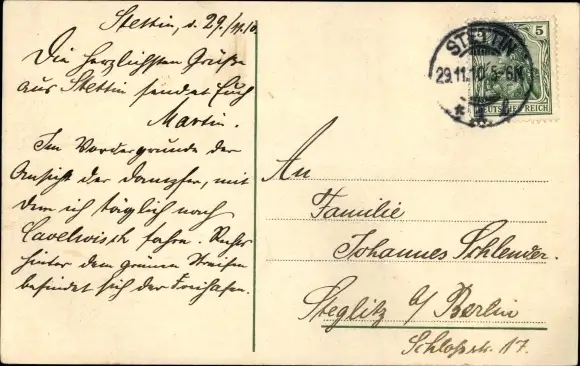 Stettin, d. 29./11.10.
Die herzlichsten Grüße
aus Stettin sendet Euch
Martin.
Im Vordergrunde der
Ansicht der Dampfer, mit
dem ich täglich nach
Cavelwisch fahre. Rechts
hinter dem grünen Streifen
befindet sich der Freihafen.
5
STETTIN
29.11.10.5-6N.
* 1
DEUTSCHES REICH
An
Familie
Johannes Schlender.
Steglitz b/ Berlin
Schloßstr. 17.